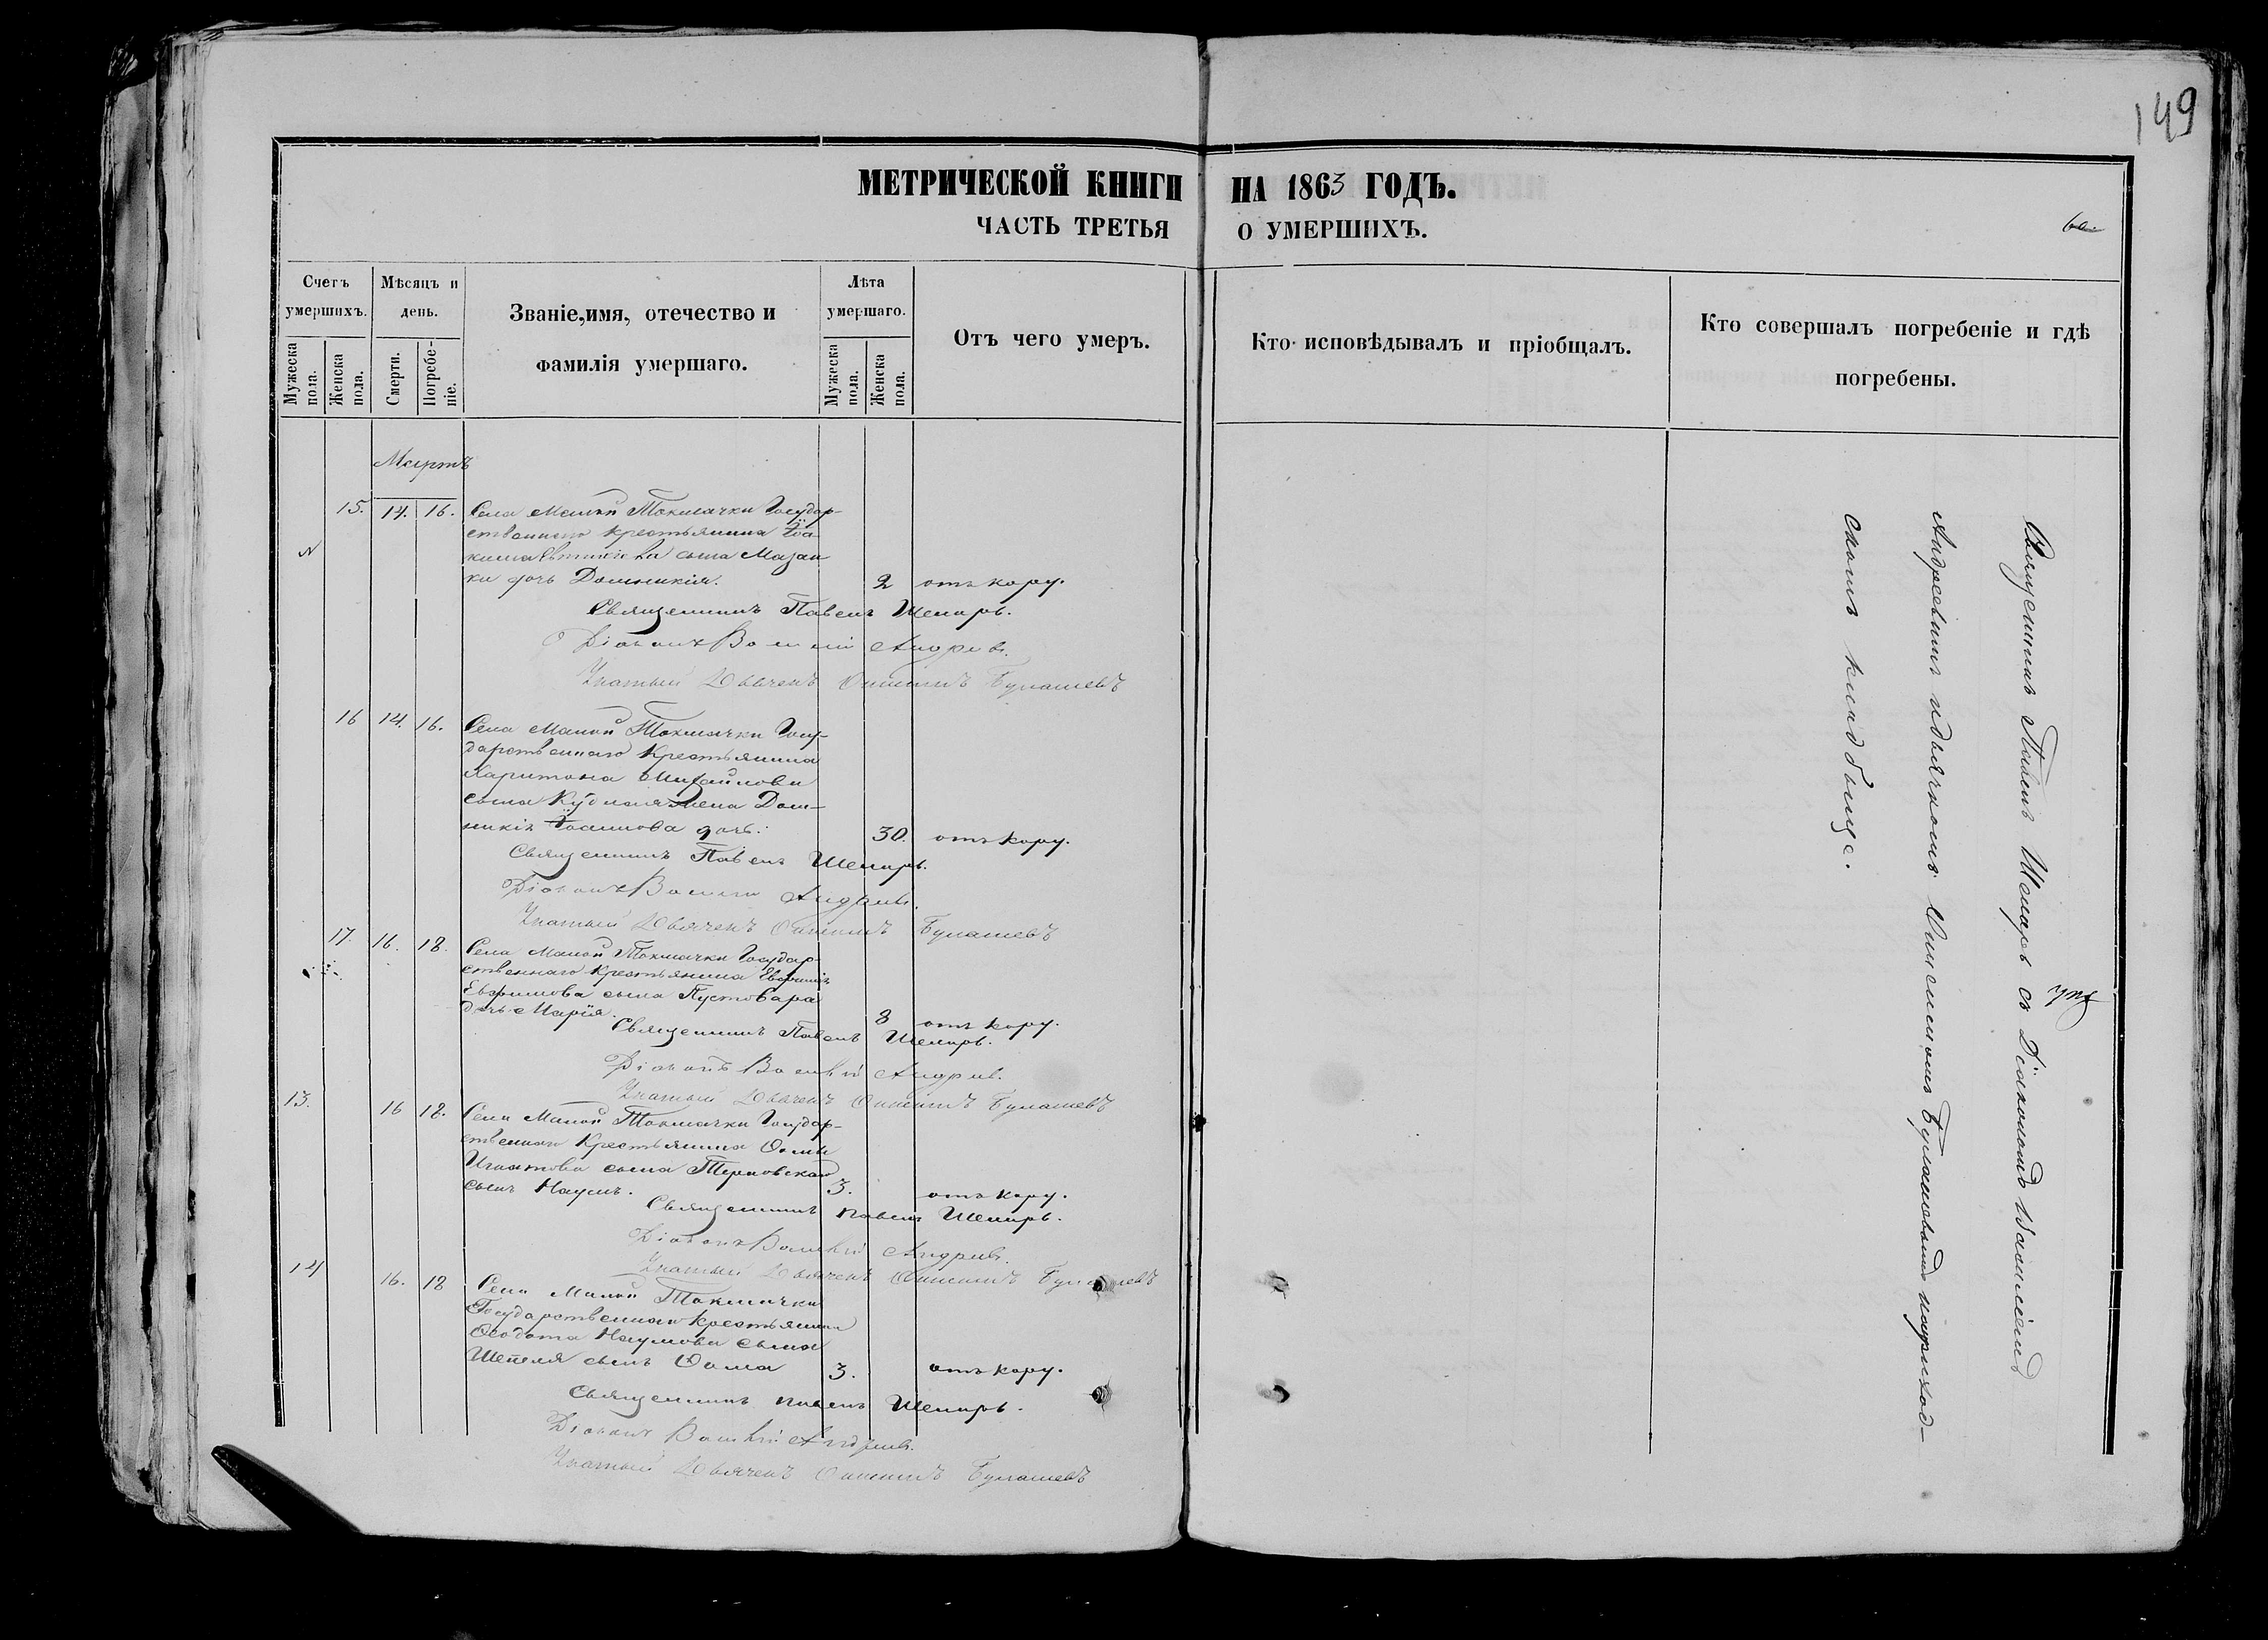 149
МЕТРИЧЕСКОЙ КНИГИ НА 1863 ГОДЪ.
ЧАСТЬ ТРЕТЬЯ О УМЕРШИХЪ.
Счетъ умершихъ.
Мужеска пола.
Женска пола.
Мѣсяцъ и день.
Смерти.
Погребе-
ніе.
Званіе, имя, отечество и
фамилія умершаго.
Лѣта умершаго.
Мужеска пола.
Женска пола.
Отъ чего умеръ.
Кто исповѣдывалъ и пріобщалъ.
Кто совершалъ погребеніе и гдѣ
погребены.
Мартъ
15. 14. 16. Села Малой Токмачки Государ-
ственнаго крестьянина Іоа-
кима сына Мазан-
ки дочь Домникія. 2 отъ кору.
Священникъ Павелъ Шемаръ.
Діаконъ Василій Андріев.
Указный Дьячекъ Онисимъ Булашевъ
16 14. 16. Села Малой Токмачки Госу-
дарственнаго Крестьянина
Харитона Михайлова
сына жена Дом-
никія Іоаннова дочь. 30. отъ кору.
Священникъ Павелъ Шемаръ.
Діаконъ Василій Андріев.
Указный Дьячекъ Онисимъ Булашевъ
17. 16. 18. Села Малой Токмачки Государ-
ственнаго Крестьянина Евфимія
Евфимова сына Пустовара
дочь Марія. 8 отъ кору.
Священникъ Павелъ Шемаръ.
Діаконъ Василій Андріев.
Указный Дьячекъ Онисимъ Булашевъ
13. 16 18. Села Малой Токмачки Государ-
ственнаго Крестьянина Ѳомы
Игнатова сына Терновскаго
сынъ Наумъ. 3. отъ кору.
Священникъ Павелъ Шемаръ.
Діаконъ Василій Андріев.
Указный Дьячекъ Онисимъ Булашевъ
14 16. 18 Села Малой Токмачки
Государственнаго Крестьянина
Ѳеодота Наумова сына
Шепеля сынъ Ѳома 3. отъ кору.
Священникъ Павелъ Шемаръ.
Діаконъ Василій Андріев.
Указный Дьячекъ Онисимъ Булашевъ
Священникъ Павелъ Шемаръ съ Діакономъ Василіемъ
Андреевымъ и дьячкомъ Онисимомъ Булашевымъ на приход-
скомъ кладбище.